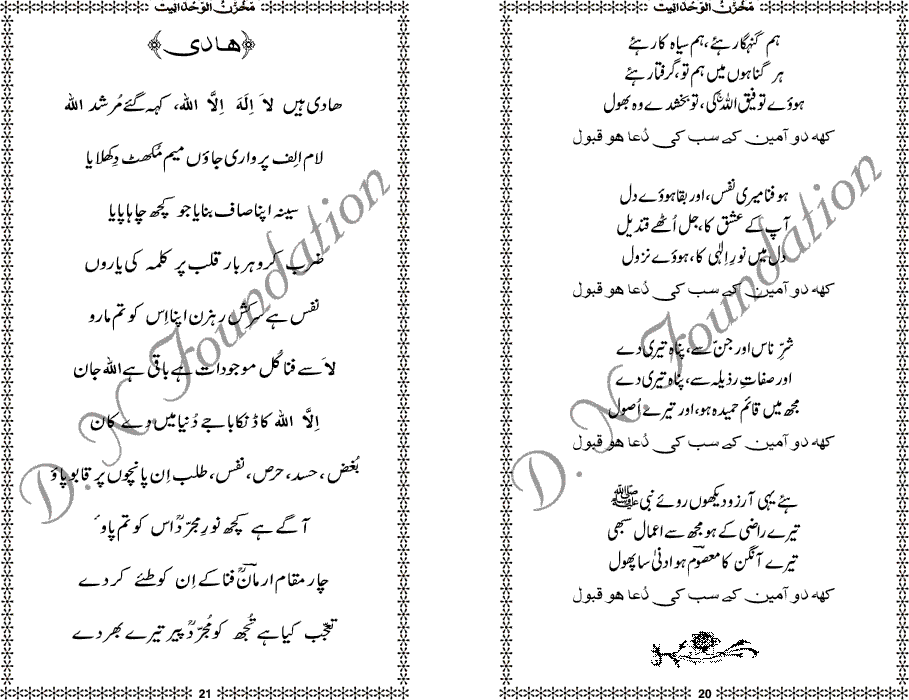 مخزن الوحدانیت
ہم گنہگار رہئے ،ہم سیاہ کار رہئے
ہر گناہوں میں ہم تو، گرفتار رہئے
ہوؤے توفیق اللہ کی ، تو بخشدے وہ بھول
کہہ دو آمین کے سب کی دُعا ہو قبول
ہو فنا میری نفس، اور بقا ہوؤے دل
آپ کے عشق کا، جل اُٹھے قندیل
دل میں نورِ اِلٰہی کا، ہوؤے نزول
کہہ دو آمین کے سب کی دُعا ہو قبول
شرِّ ناس اور جن سے، پناہ تیری دے
اور صفاتِ رذیلہ سے، پناہ تیری دے
مجھ میں قائم حمیدہ ہو، اور تیرے اُصول
کہہ دو آمین کے سب کی دُعا ہو قبول
ہئے یہی آرزو دیکھوں روئے نبی ﷺ
تیرے راضی کے ہو مجھ سے اعمال سبھی
تیرے آنگن کا معصومؔ ہو ادنیٰ سا پھول
کہہ دو آمین کے سب کی دُعا ہو قبول
20
مخزن الوحدانیت
﴿ھادی﴾
ھادی ہیں لَا اِلٰہَ اِلَّا اللہ، کہہ گئے مُرشد اللہ
لام الِف پر واری جاؤں میم مُکھٹ دِکھلایا
سینہ اپنا صاف بنایا جو کچھ چاہا پایا
ضرب کرو ہر بار قلب پر کلمہ کی یاروں
نفس ہے سرکش رہزن اپنا اِس کو تم مارو
لَا سے فنا کُل موجودات ہے باقی ہے اللہ جان
اِلَّا اللہ کا ڈنکا باجے دُنیا میں دے کان
بُغض، حسد، حرص، نفس، طلب اِن پانچوں پر قابو پاؤ
آگے ہے کچھ نورِ مجرّد اس کو تم پاؤ
چار مقام ارمانؔ فنا کے اِن کو طئے کر دے
تعجّب کیا ہے تُجھ کو مُجرّد پیر تیرے بھر دے
21
D. N. Foundation
D. N. Foundation